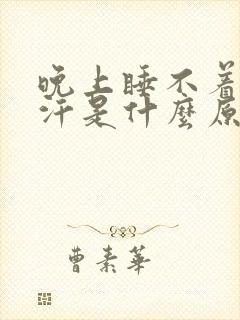 晚上睡不着
汗是什麼原
曹素華